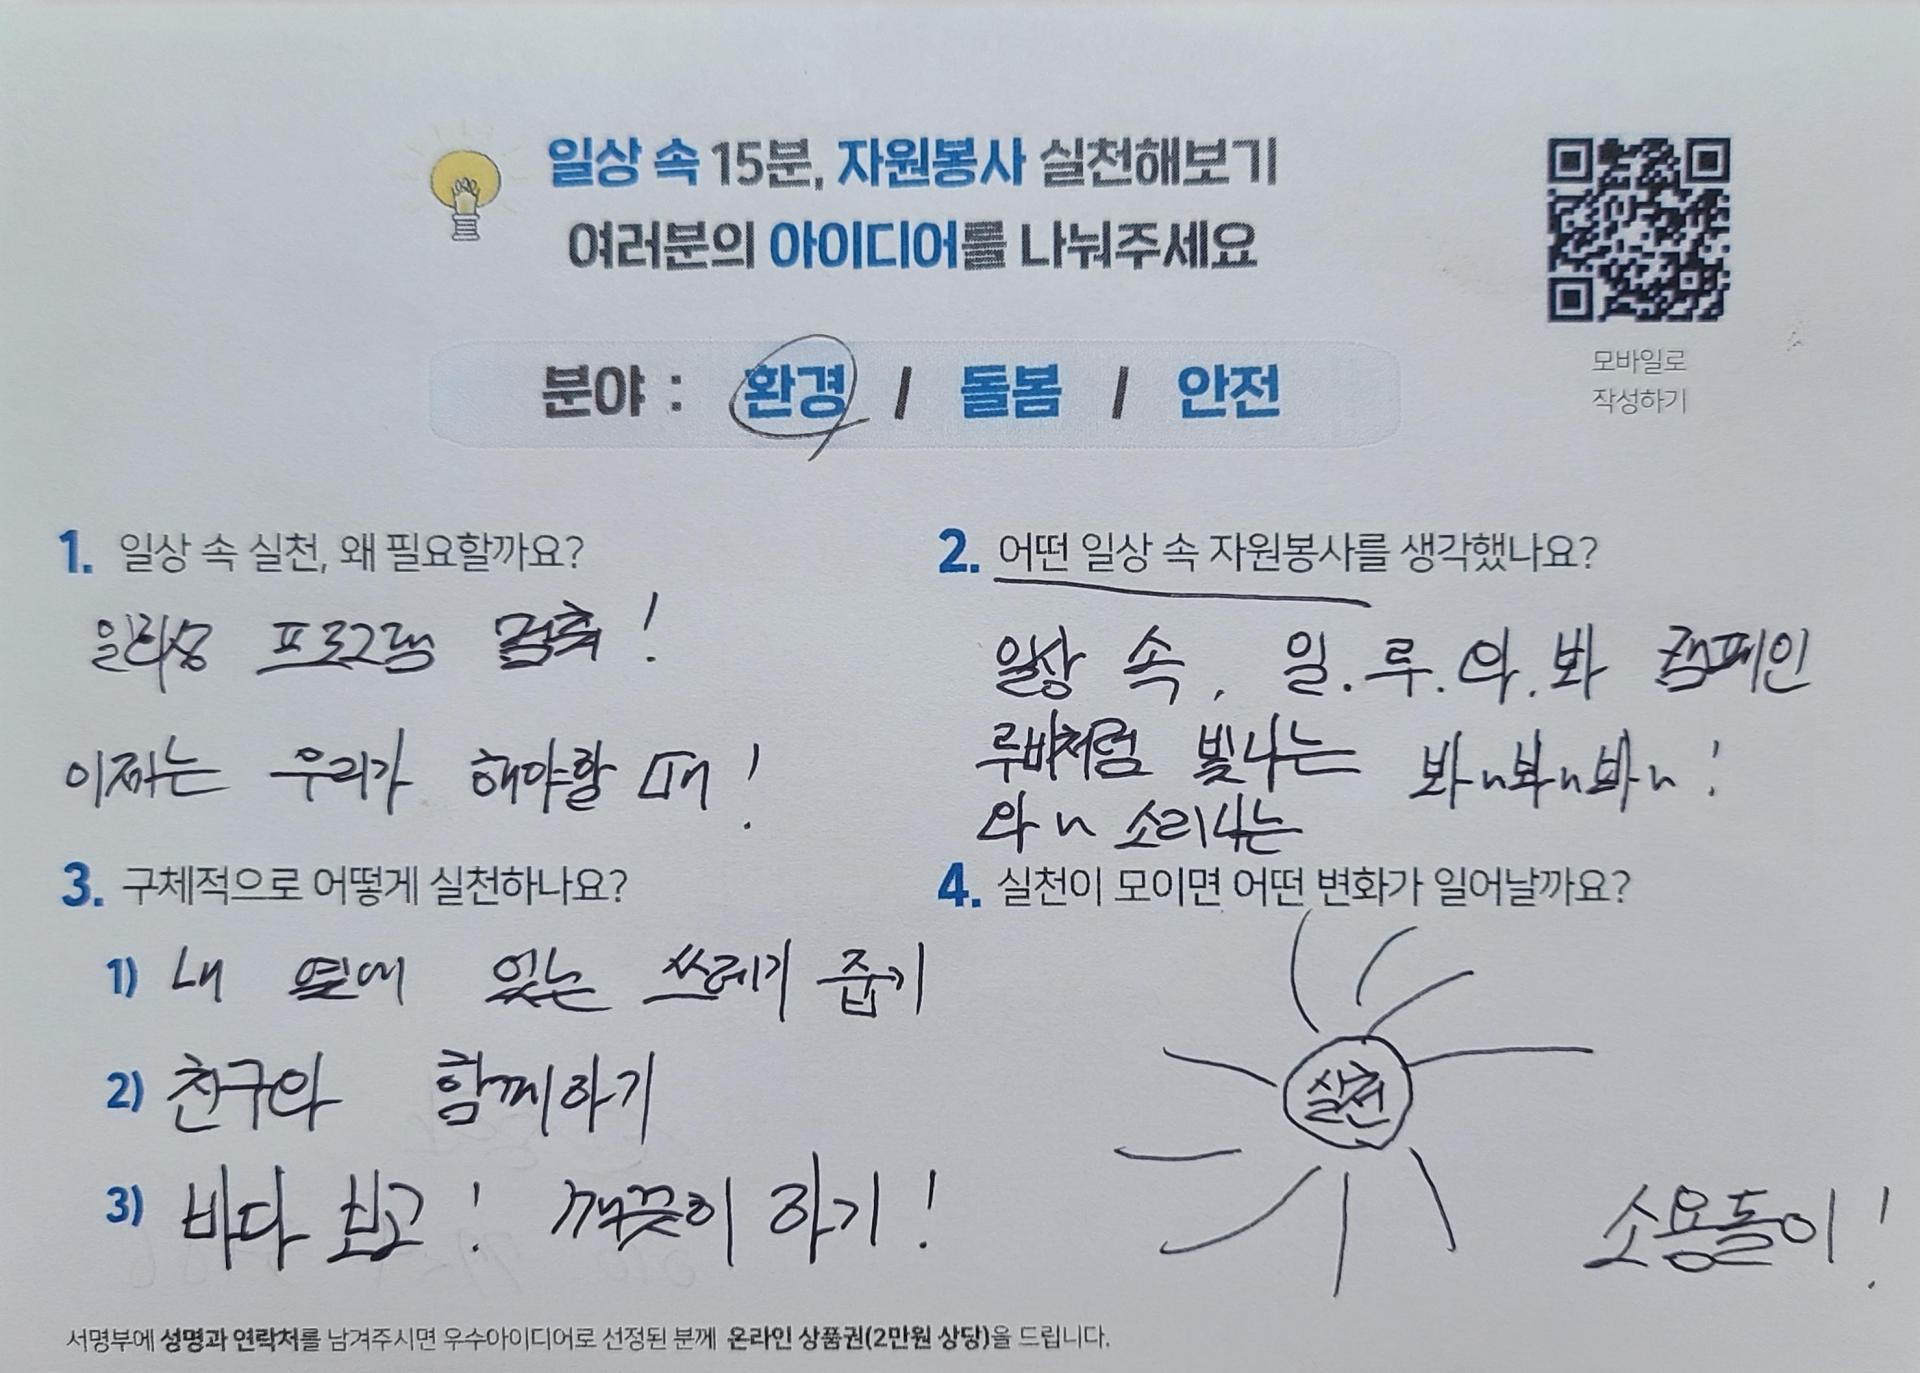 일상 속 15분, 자원봉사 실천해보기
여러분의 아이디어를 나눠주세요
모바일로
작성하기
분야 : 환경 / 돌봄 / 안전
1. 일상 속 실천, 왜 필요할까요?
일회성 프로그램 !
이제는 우리가 해야할 때 !
2. 어떤 일상 속 자원봉사를 생각했나요?
일상 속, 일.루.와.봐 캠페인
루비처럼 빛나는
와~ 소리나는
봐~봐~봐~!
3. 구체적으로 어떻게 실천하나요?
1) 내 옆에 있는 쓰레기 줍기
2) 친구와 함께하기
3) 바다 보고! 깨끗이 하기!
4. 실천이 모이면 어떤 변화가 일어날까요?
실천
소용돌이!
서명부에 성명과 연락처를 남겨주시면 우수아이디어로 선정된 분께 온라인 상품권(2만원 상당)을 드립니다.